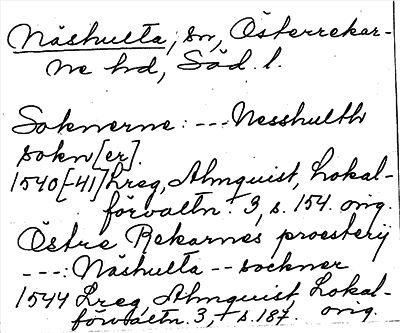 Näshulta, sn, Österrekar-
ne hd, Söd. l.
Soknerne: --- Nesshulth
sokn[er].
1540[-41] Lreg, Almquist, Lokal-
förvaltn. 3, s. 154. orig.
Östre Rekarnes proesterij
---: Näshulta -- sockner
1544 Lreg, Almquist, Lokal-
förvaltn. 3, s. 187. orig.